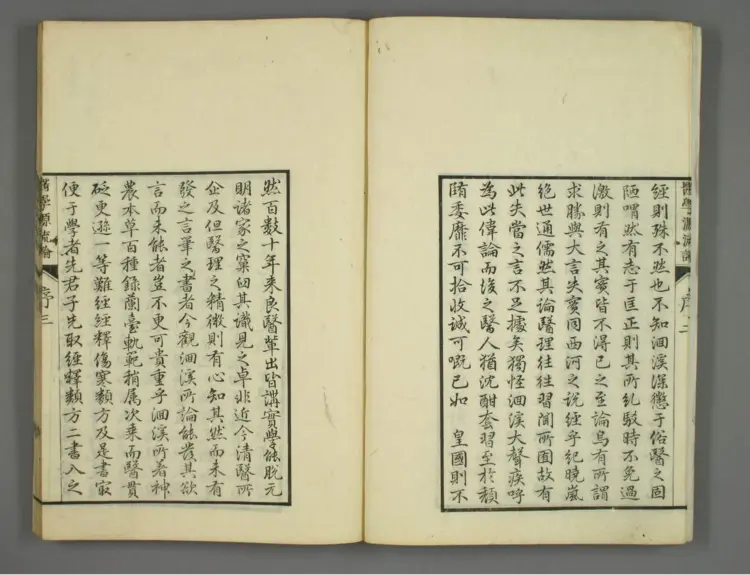 醫學源流論 序 二
經則殊不然也不知洄溪深懲于俗醫之固
陋喟然有志于匡正則其所糺駁時不免過
激則有之其實皆不得已之至論烏有所謂
求勝與大言失實同西河之說經乎紀曉嵐
絕世通儒然其論醫理往往習聞所囿故有
此失當之言不足據矣獨怪洄溪大聲疾呼
為此偉論而後之醫人猶沈酣套習至於頹
隋委靡不可拾收誠可嘅已如　皇國則不
然百數十年来良醫輩出皆講實學能脫元
明諸家之窠臼其識見之卓非近今清醫所
企及但醫理之精微則有心知其然而未有
發之言畢之書者今觀洄溪所論能發其欲
言而未能者豈不更可貴重乎洄溪所著神
農本草百種錄蘭臺軌範稍屬次乘而醫貫
砭更遜一等難經經釋傷寒類方及是書冣
便于學者先君子先取經釋類方二書入之
醫學源流論 序 三